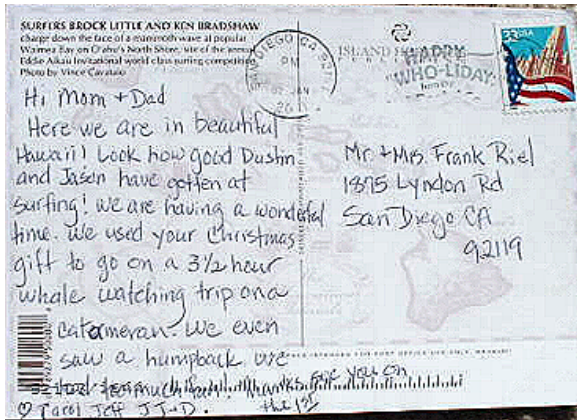 SURFERS BROCK LITTLE AND KEN BRADSHAW
charge down the face of a mammoth wave at popular
Waimea Bay on O'ahu's North Shore, site of the annual
Eddie Aikau Invitational world class surfing competition.
Photo by Vince Cavataio
Hi Mom + Dad
Here we are in beautiful
Hawaii! Look how good Dustin
and Jason have gotten at
surfing! we are having a wonderful
time. We used your Christmas
gift to go on a 3 1/2 hour
whale watching trip on a
catameran. We even
saw a humpback we
had too much fun! Thanks. See you on
the 1st
♡ Carol Jeff J J + D.
SAN DIEGO CA
PM
JAN
ISLAND
HAPPY
WHO-LIDAY
33 USA
Mr. + Mrs. Frank Riel
1875 Lyndon Rd
San Diego CA
92119